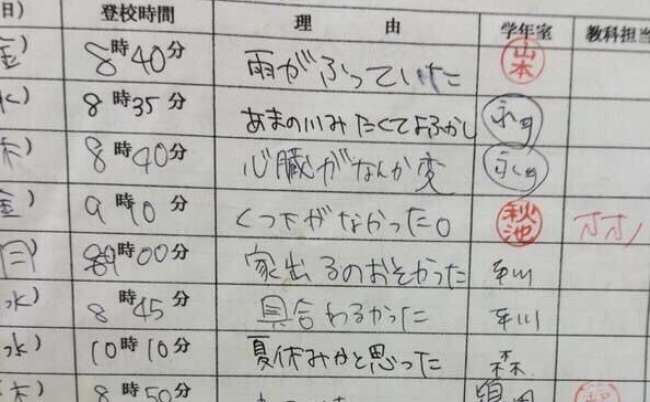 日) 登校時間 理 由 学年室 教科担当
金) 8時40分 雨がふっていた 山本
水) 8時35分 あまの川みたくてよふかし 永田
木) 8時40分 心臓がなんか変 永田
金) 9時10分 くつ下がなかった。 秋池
(日) 9時00分 家出るのおそかった 平川
水) 8時45分 具合わるかった 平川
(水) 10時10分 夏休みかと思った 森
(木) 8時50分